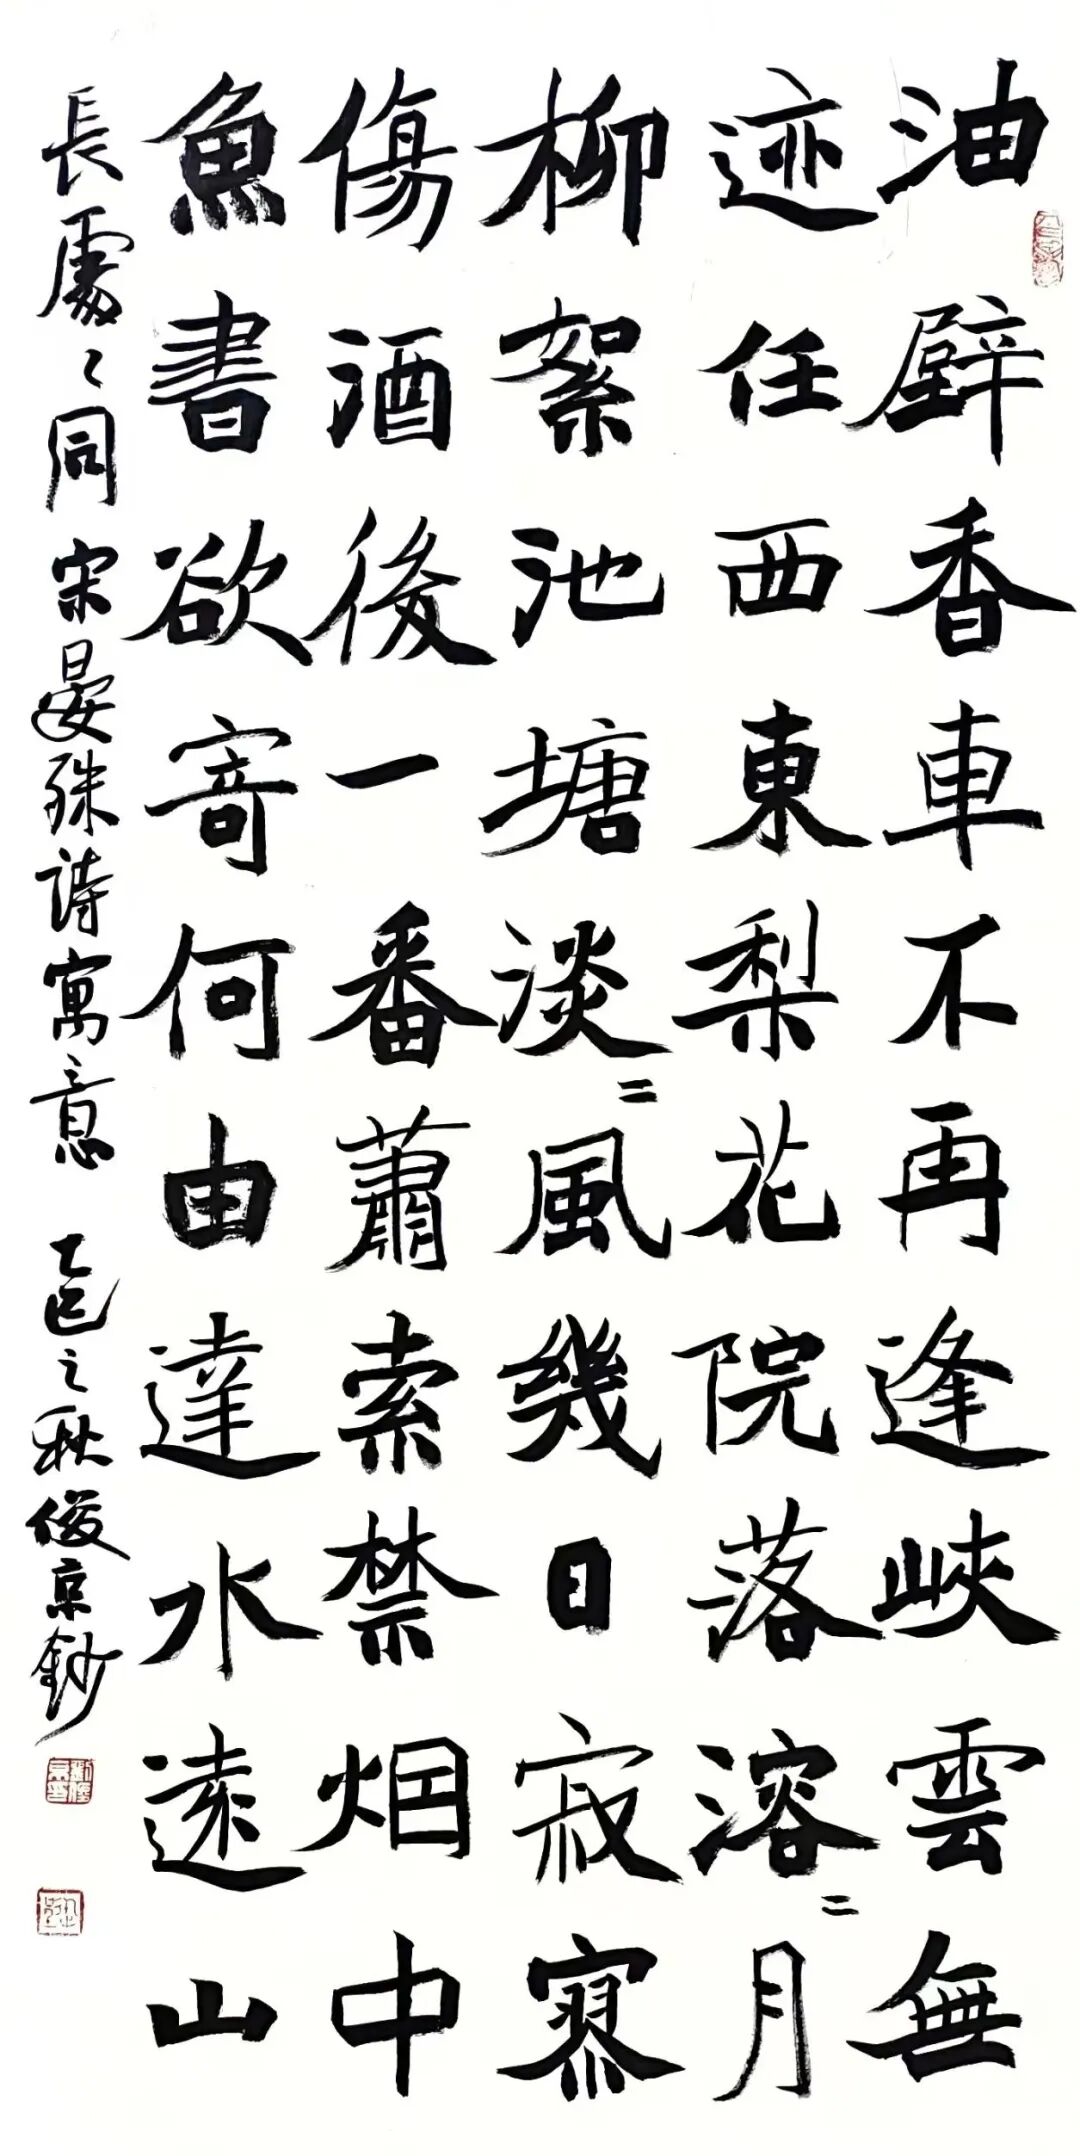 油壁香車不再逢峽雲無
迹任西東梨花院落溶〻月
柳絮池塘淡〻風幾日寂寥
傷酒後一番蕭索禁烟中
魚書欲寄何由達水遠山
長處〻同 宋晏殊詩寓意 乙巳之秋俊京鈔